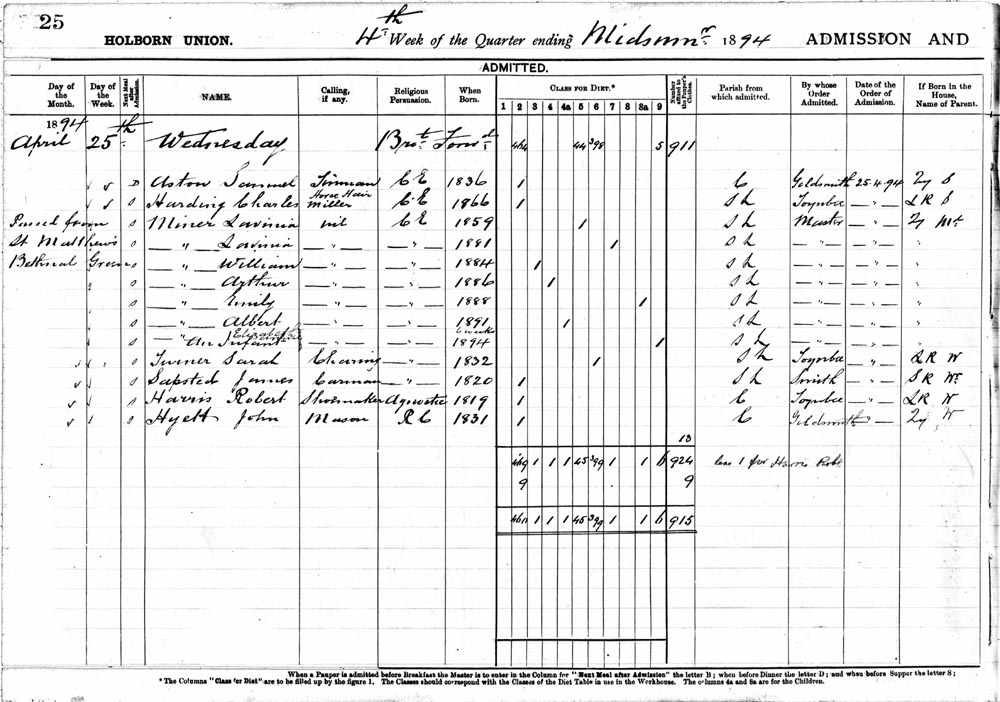 25
HOLBORN UNION. 4th Week of the Quarter ending Midsumr. 1894 ADMISSION AND
ADMITTED.
Day of the Month. Day of the Week. Next Meal after Admission. NAME. Calling, if any. Religious Persuasion. When Born. CLASS FOR DIET.* 1 2 3 4 4a 5 6 7 8 8a 9 Number affixed to the Pauper's Clothes. Parish from which admitted. By whose Order Admitted. Date of the Order of Admission. If Born in the House, Name of Parent.
1894
April 25th Wednesday Brot. Forwd 464 44 398 5 911
D Aston Samuel Tinman CE 1836 1 C Goldsmith 25.4.94 Zy S
S Harding Charles Horse Hair Miller CE 1866 1 S L Toynbee " LR S
Passed from S Miner Lavinia nil CE 1859 1 S L Master " Zy Mt
St Matthews S " Lavinia " " 1881 1 S L " " "
Bethnal Green S " William " " 1884 1 S L " " "
S " Arthur " " 1886 1 S L " " "
S " Emily " " 1888 1 S L " " "
S " Albert " " 1891 1 S L " " "
S " An Infant Elizabeth " " 6 weeks 1894 1 S L " " "
S Turner Sarah Charing " 1832 1 S L Toynbee " LR W
S Sapsted James Carman " 1820 1 S L Smith " SR Wr
S Harris Robert Shoemaker Agnostic 1819 1 C Toynbee " LR W
S Hyett John Mason RC 1831 1 C Goldsmith " Zy W
13
469 1 1 1 45 399 1 1 6 924 less 1 for Harris Robt
9 9
460 1 1 1 45 399 1 1 6 915
When a Pauper is admitted before Breakfast the Master is to enter in the Column for "Next Meal after Admission" the letter B; when before Dinner the letter D; and when before Supper the letter S;
*The Columns "Class for Diet" are to be filled up by the figure 1. The Classes should correspond with the Classes of the Diet Table in use in the Workhouse. The columns 4a and 8a are for the Children.